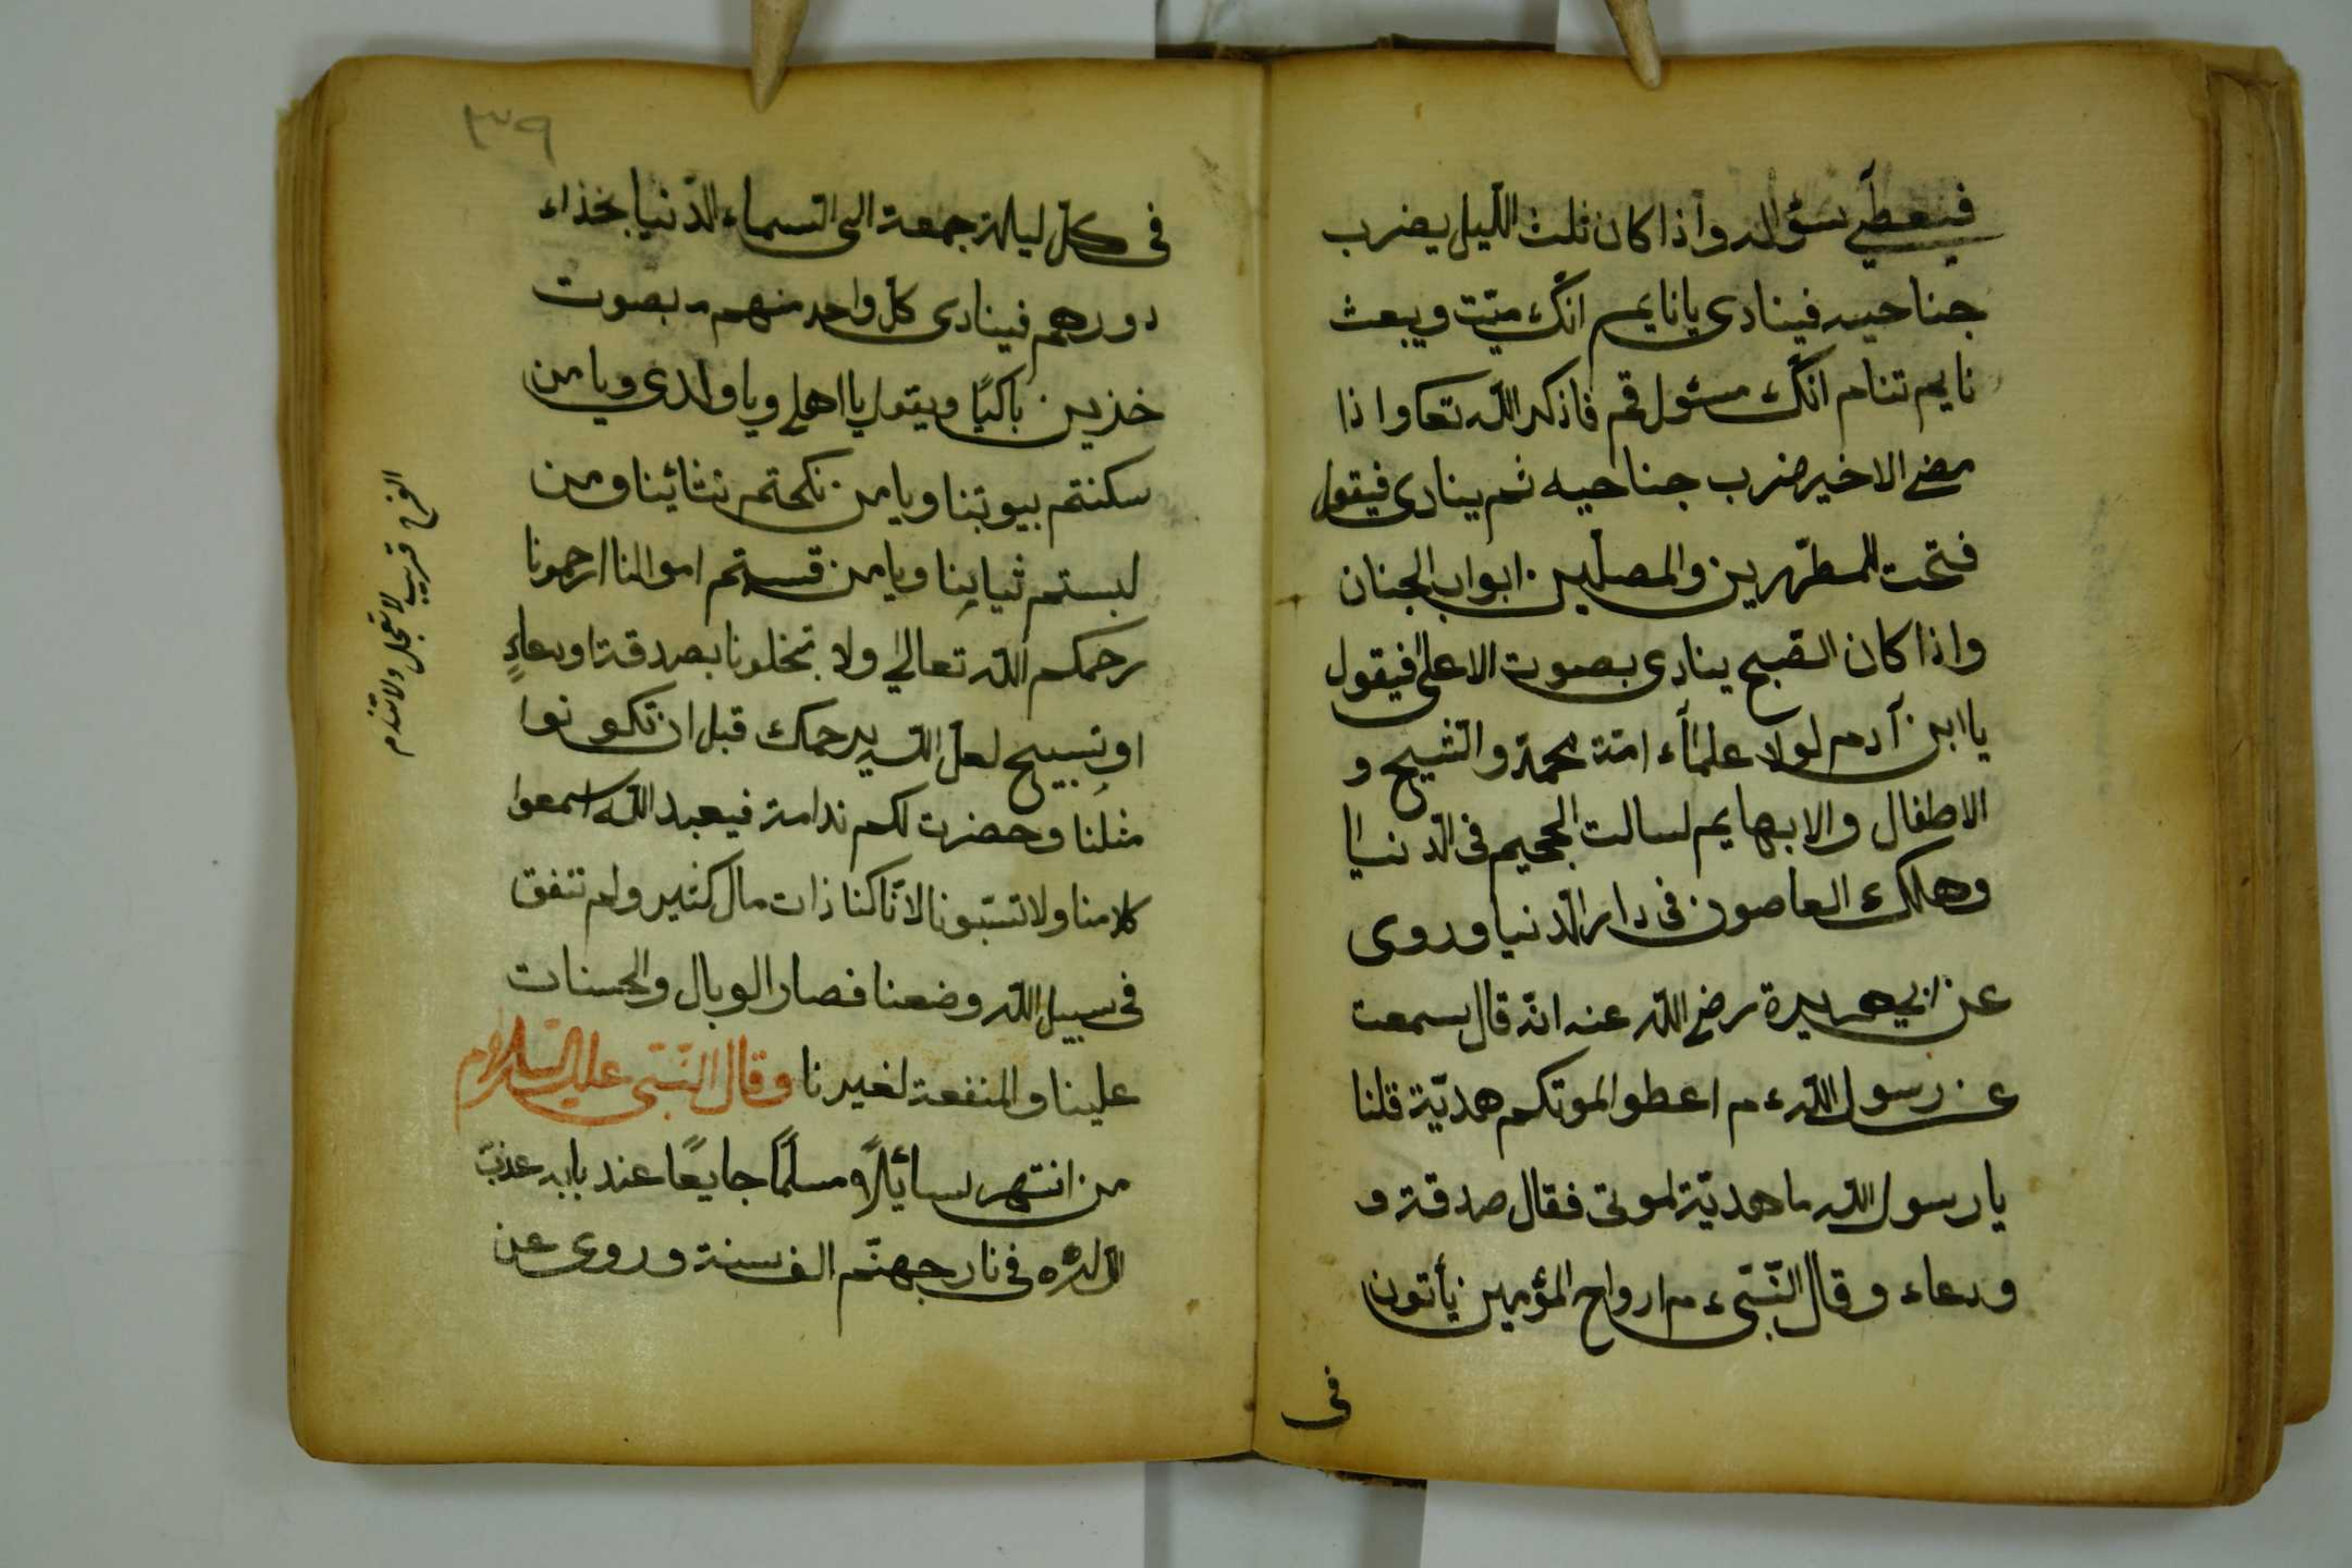 فيعطي سؤاله واذا كان ثلث الليل يضرب
جناحيه فينادى يا نايم انّك ميّت ويبعث
نايم تنام انّك مسئول قم فاذكر اللّه تعا واذا
مضى الاخير ضرب جناحيه ثم ينادى فيقول
فتحت للمطّهرين والمصلّين ابواب الجنان
واذا كان الصّبح ينادى بصوت الاعلى فيقول
يا ابن آدم لولا علمآء امّة محمّد والشّيح و
الاطفال والابهايم لسالت الجحيم فى الدّنيا
وهلك العاصون فى دار الدّنيا وروى
عن ابي هريرة رضى اللّه عنه انّه قال سمعت
عن رسول اللّه ءم اعطوا لموتكم هديّة قلنا
يا رسول اللّه ما هديّة لموتى فقال صدقة و
ودعاء وقال النّبّى ءم ارواح المؤمين يأتون
فى
٣٩
فى كلّ ليلة جمعة الى السّماء الدّنيا بخذاء
دورهم فينادى كلّ واحد منهم بصوت
خذين باكيًا ويقول يا اهلى ويا ولدى ويا من
سكنتم بيوتنا ويا من نكحتم نشائينا ومن
لبستم ثيابنا ويا من قسمتم اموالنا ارحمونا
رحمكم اللّه تعالى ولا تخلونا بصدقة ودعاءٍ
او تسبيح لعلّ اللّه يرحمك قبل ان تكونوا
مثلنا وحضرت لكم ندامة فيعبد اللّه اسمعوا
كلامنا ولا تسبّونا لانّا كنا ذات مال كثير ولم تنفق
فى سبيل اللّه وضعنا فصار الوبال والحسنات
علينا والمنفعة لغيرنا وقال النّبّى عليه السّلام
من انتهر سائيلاً مسلمًا جايعًا عند بابه عذبّ
اللّه فى نار جهنّم الف سنة وروى عن
الفرج قريب لا تعجل ولا تندم